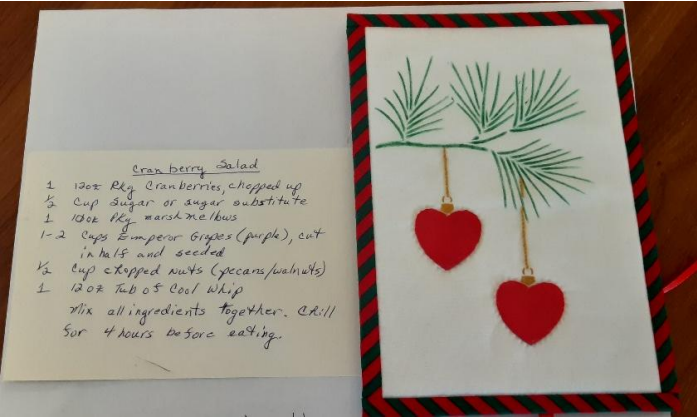 Cranberry Salad
1 12oz Pkg Cranberries, chopped up
1/2 Cup Sugar or sugar substitute
1 10oz Pkg marshmellows
1-2 Cups Emperor Grapes (purple), cut
in half and seeded
1/2 Cup chopped Nuts (pecans/walnuts)
1 12oz Tub of Cool Whip
Mix all ingredients together. Chill
for 4 hours before eating.